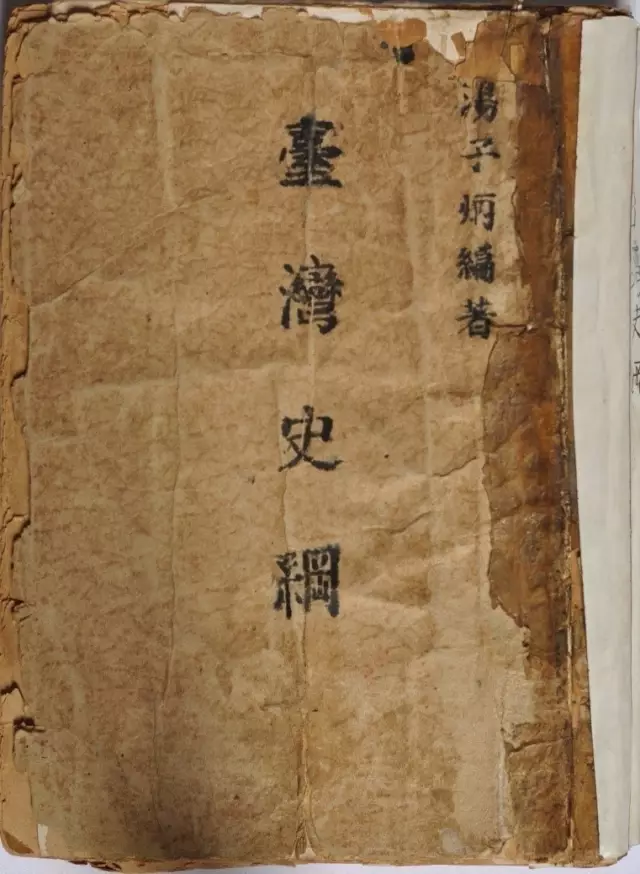 湯子炳編著
臺灣史綱